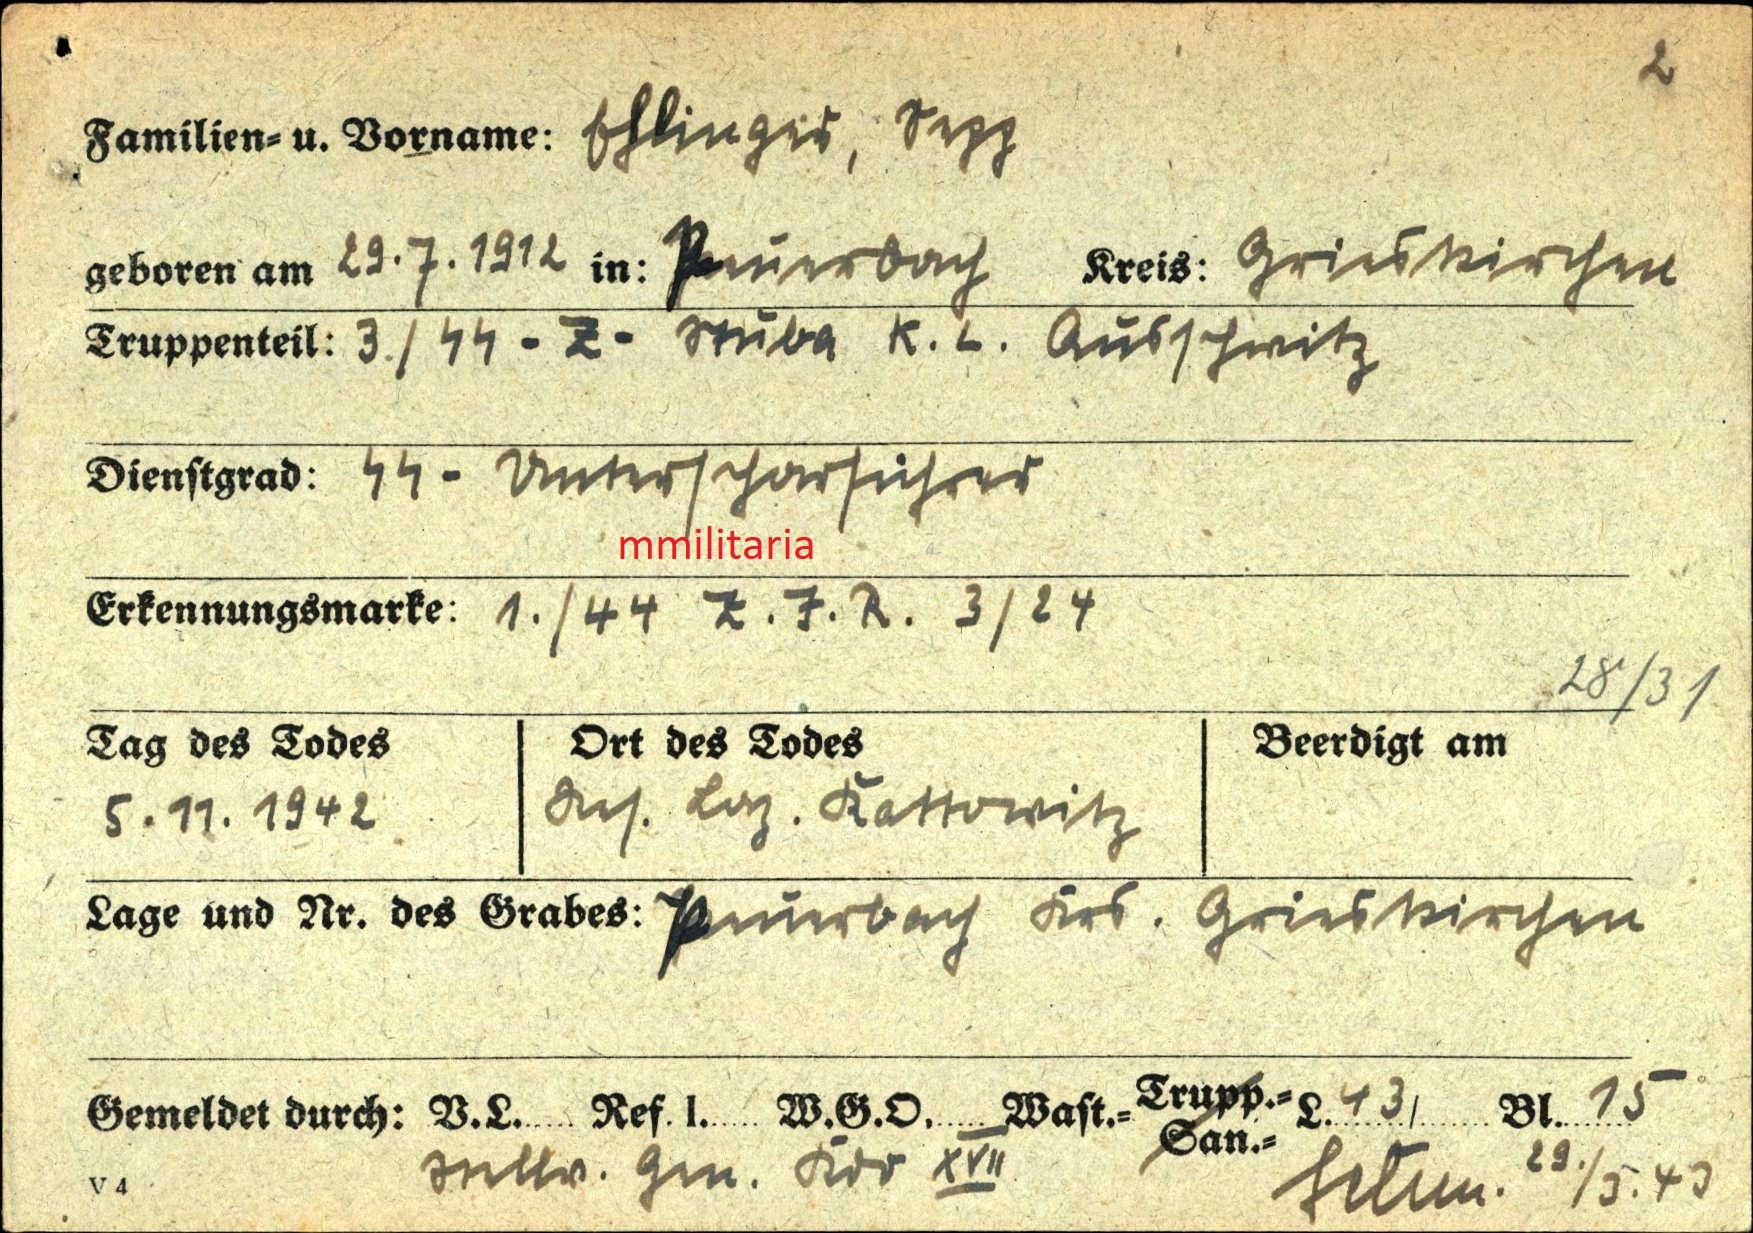 2
Familien- u. Vorname: Ehlinger, Sepp
geboren am 29.7.1912 in: Peuerbach Kreis: Grieskirchen
Truppenteil: 3./ᛋᛋ-Z- Stuba K.L. Ausschwitz
Dienstgrad: ᛋᛋ-Unterscharführer
mmilitaria
Erkennungsmarke: 1./44 Z.J.R. 3/24
28/31
Tag des Todes Ort des Todes Beerdigt am
5.11.1942 Res. Laz. Kattowitz
Lage und Nr. des Grabes: Peuerbach Krs. Grieskirchen
Gemeldet durch: V.L..... Ref. I..... W.G.O..... Wast.- Trupp.- San.- L. 43/ Bl. 15
V 4 stellv. Gen. Kdo XVII 29./5.43